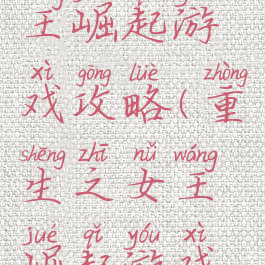 王崛起游
xì gōng lüè zhòng
戏攻略(重
shēng zhī nǚ wáng
生之女王
jué qǐ yóu xì
崛起游戏